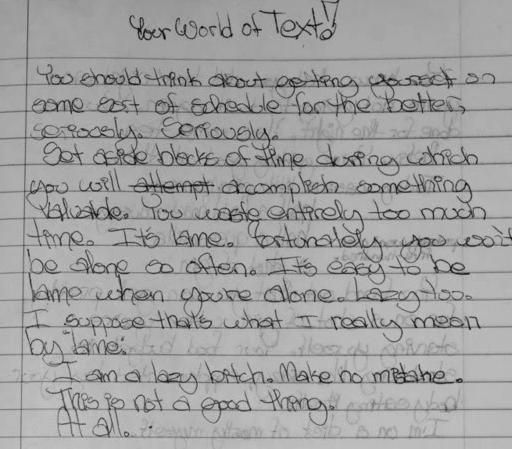 Your World of Text!!
You should think about getting yourself on
some sort of schedule for the better,
seriously. Seriously.
Set aside blocks of time during which
you will attempt accomplish something
valuable. You waste entirely too much
time. It's lame. Fortunately you won't
be alone so often. It's easy to be
lame when you're alone. Lazy too.
I suppose that's what I really mean
by "lame."
I am a lazy bitch. Make no mistake.
This is not a good thing.
At all.